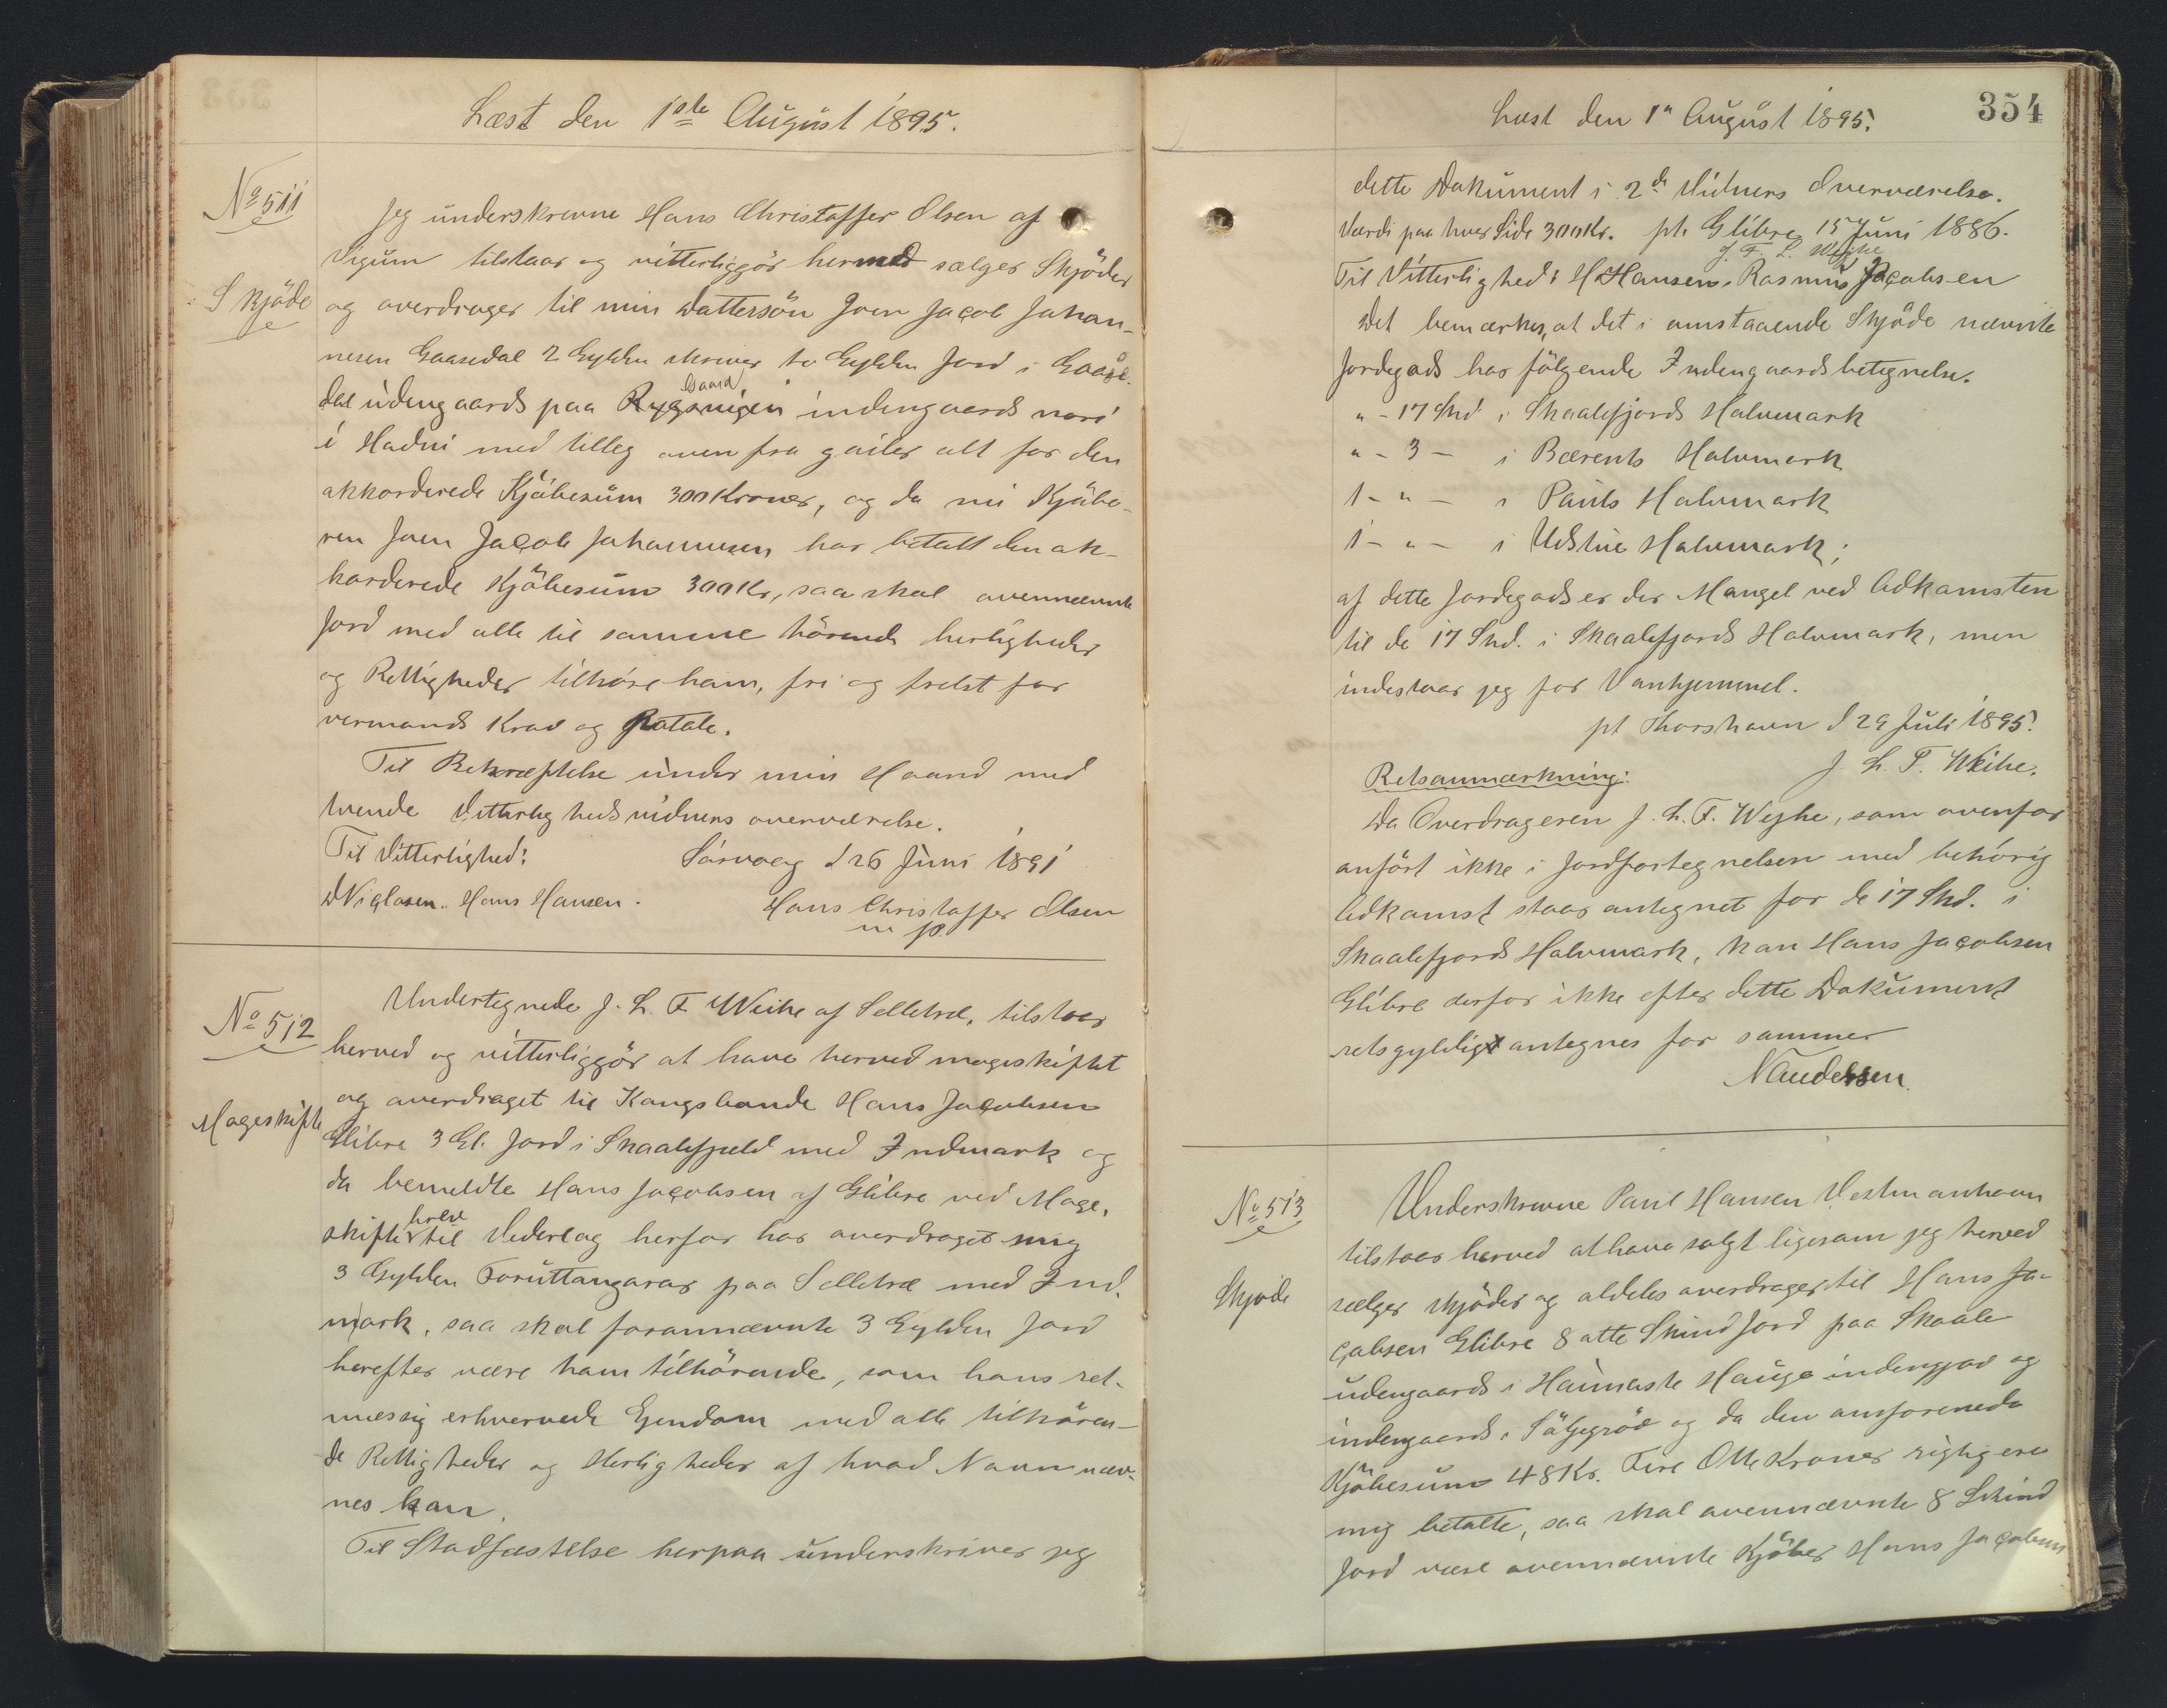 Læst den 1ste August 1895.
No 511
Skjöde
Jeg underskrevne Hans Christoffer Olsen af
Vigum tilstaar og vitterliggör hermed sælger Skjöder
og overdrager til min Dattersön Joen Jacob Johan-
nesen Gaasedal 2 Gylden skriver to Gylden Jord i Gaase-
dal udengaards paa indengaards nori
i Hadni med tilleg oven fra gailer alt for den
akkorderede Kjöbesum 300 Kroner, og da nu Kjöbe-
ren Joen Jacob Johannesen har betalt den ak-
korderede Kjöbesum 300 Kr, saa skal ovennævnte
Jord med alle til samme hörende herligheder
og Rettigheder tilhöre ham, fri og frelst for
vermands Krav og Patale.
Til Bekræftelse under min Haand med
tvende Vitterlighedsvidners overværelse.
Til Vitterlighed: Sörvaag d 26 Juni 1891
DNiclasen. Hans Hansen. Hans Christoffer Olsen
m p.
No 512
Mageskifte
Undertegnede J. L. F. Weihe af Selletræ, tilstaar
herved og vitterliggör at have herved mageskiftet
og overdraget til Kongsbonde Hans Jacobsen
Glibre 3 Gl. Jord i Skaalefjeld med Indmark og
da bemeldte Hans Jacobsen af Glibre ved Mage-
skifte til Vederlag herfor har overdraget mig
3 Gylden Foruttangarar paa Selletræ med Ind-
mark, saa skal forannævnte 3 Gylden Jord
herefter være ham tilhörende, som hans ret-
mæssig erhvervede Ejendom med alle tilhören-
de Rettigheder og Herligheder af hvad Navn næv-
nes kan.
Til Stadfæstelse herpaa underskriver jeg
Læst den 1n August 1895.
354
dette Dokument i 2de Vidners Overværelse.
Værdi paa hver Side 300 Kr. pt. Glibre 15 Juni 1886.
J. F. L. Weyhe
Til Vitterlighed: H Hansen. Rasmus Jacobsen
Det bemærkes, at det i omstaaende Skjöde nævnte
Jordegods har fölgende Indengaardsbetegnelse.
" - 17 Skd i Skaalefjords Halvmark
" - 3 - i Bærents Halvmark
1 - " - i Pauls Halvmark
1 - " - i Udstue Halvmark;
af dette Jordegods er der Mangel ved Adkomsten
til de 17 Skd. i Skaalefjords Halvmark, men
indestaar jeg for Vanhjemmel.
pt Thorshavn d 29 Juli 1895.
J. L. F. Weihe.
Retsanmærkning:
Da Overdrageren J. L. F. Weyhe, som ovenfor
anfört ikke i Jordfortegnelsen med behörig
Adkomst staar antegnet for de 17 Skd. i
Skaalefjords Halvmark, kan Hans Jacobsen
Glibre derfor ikke efter dette Dokument
retsgyldigt antegnes for samme
NAndersen.
No 513
Skjöde
Underskrevne Paul Hansen Vestmanhavn
tilstaar herved at have solgt ligesom jeg herved
sælger skjöder og aldeles overdrager til Hans Ja-
cobsen Glibre 8 otte Skind Jord paa Skaale
udengaards i Haimaste Hauge indengjav og
indengaards i Säljegröv og da den omforenede
Kjöbesum 48 Kr. Fire Otte Kroner rigtig ere
mig betalte, saa skal ovennævnte 8 Skind
Jord være ovennævnte Kjöber Hans Jacobsen